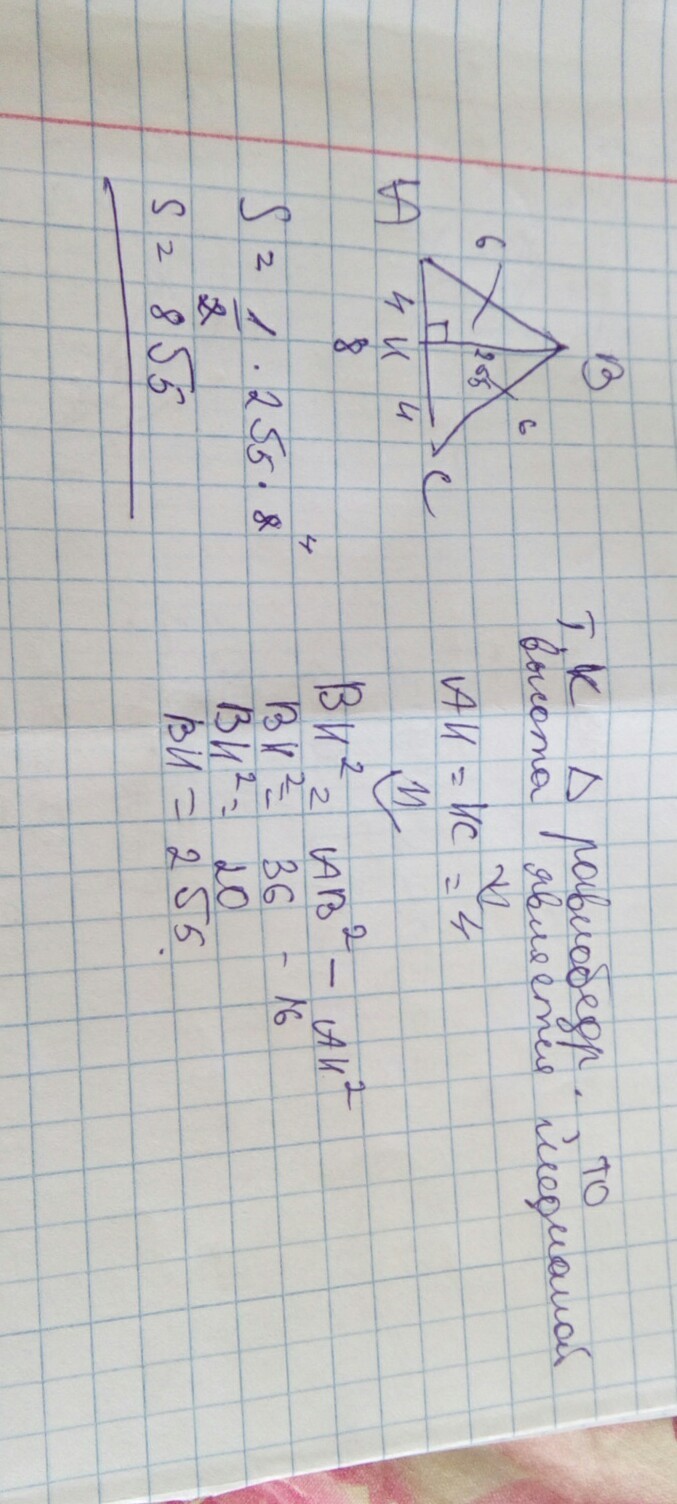 B
6 6
2√5
4 4
A H C
8
S = 1/2 · 2√5 · 8 4
S = 8√5
т.к Δ равнобедр. то
высота является медианой
⇓
AH = HC = 4
⇓
BH² = AB² - AH²
BH² = 36 - 16
BH² = 20
BH = 2√5.